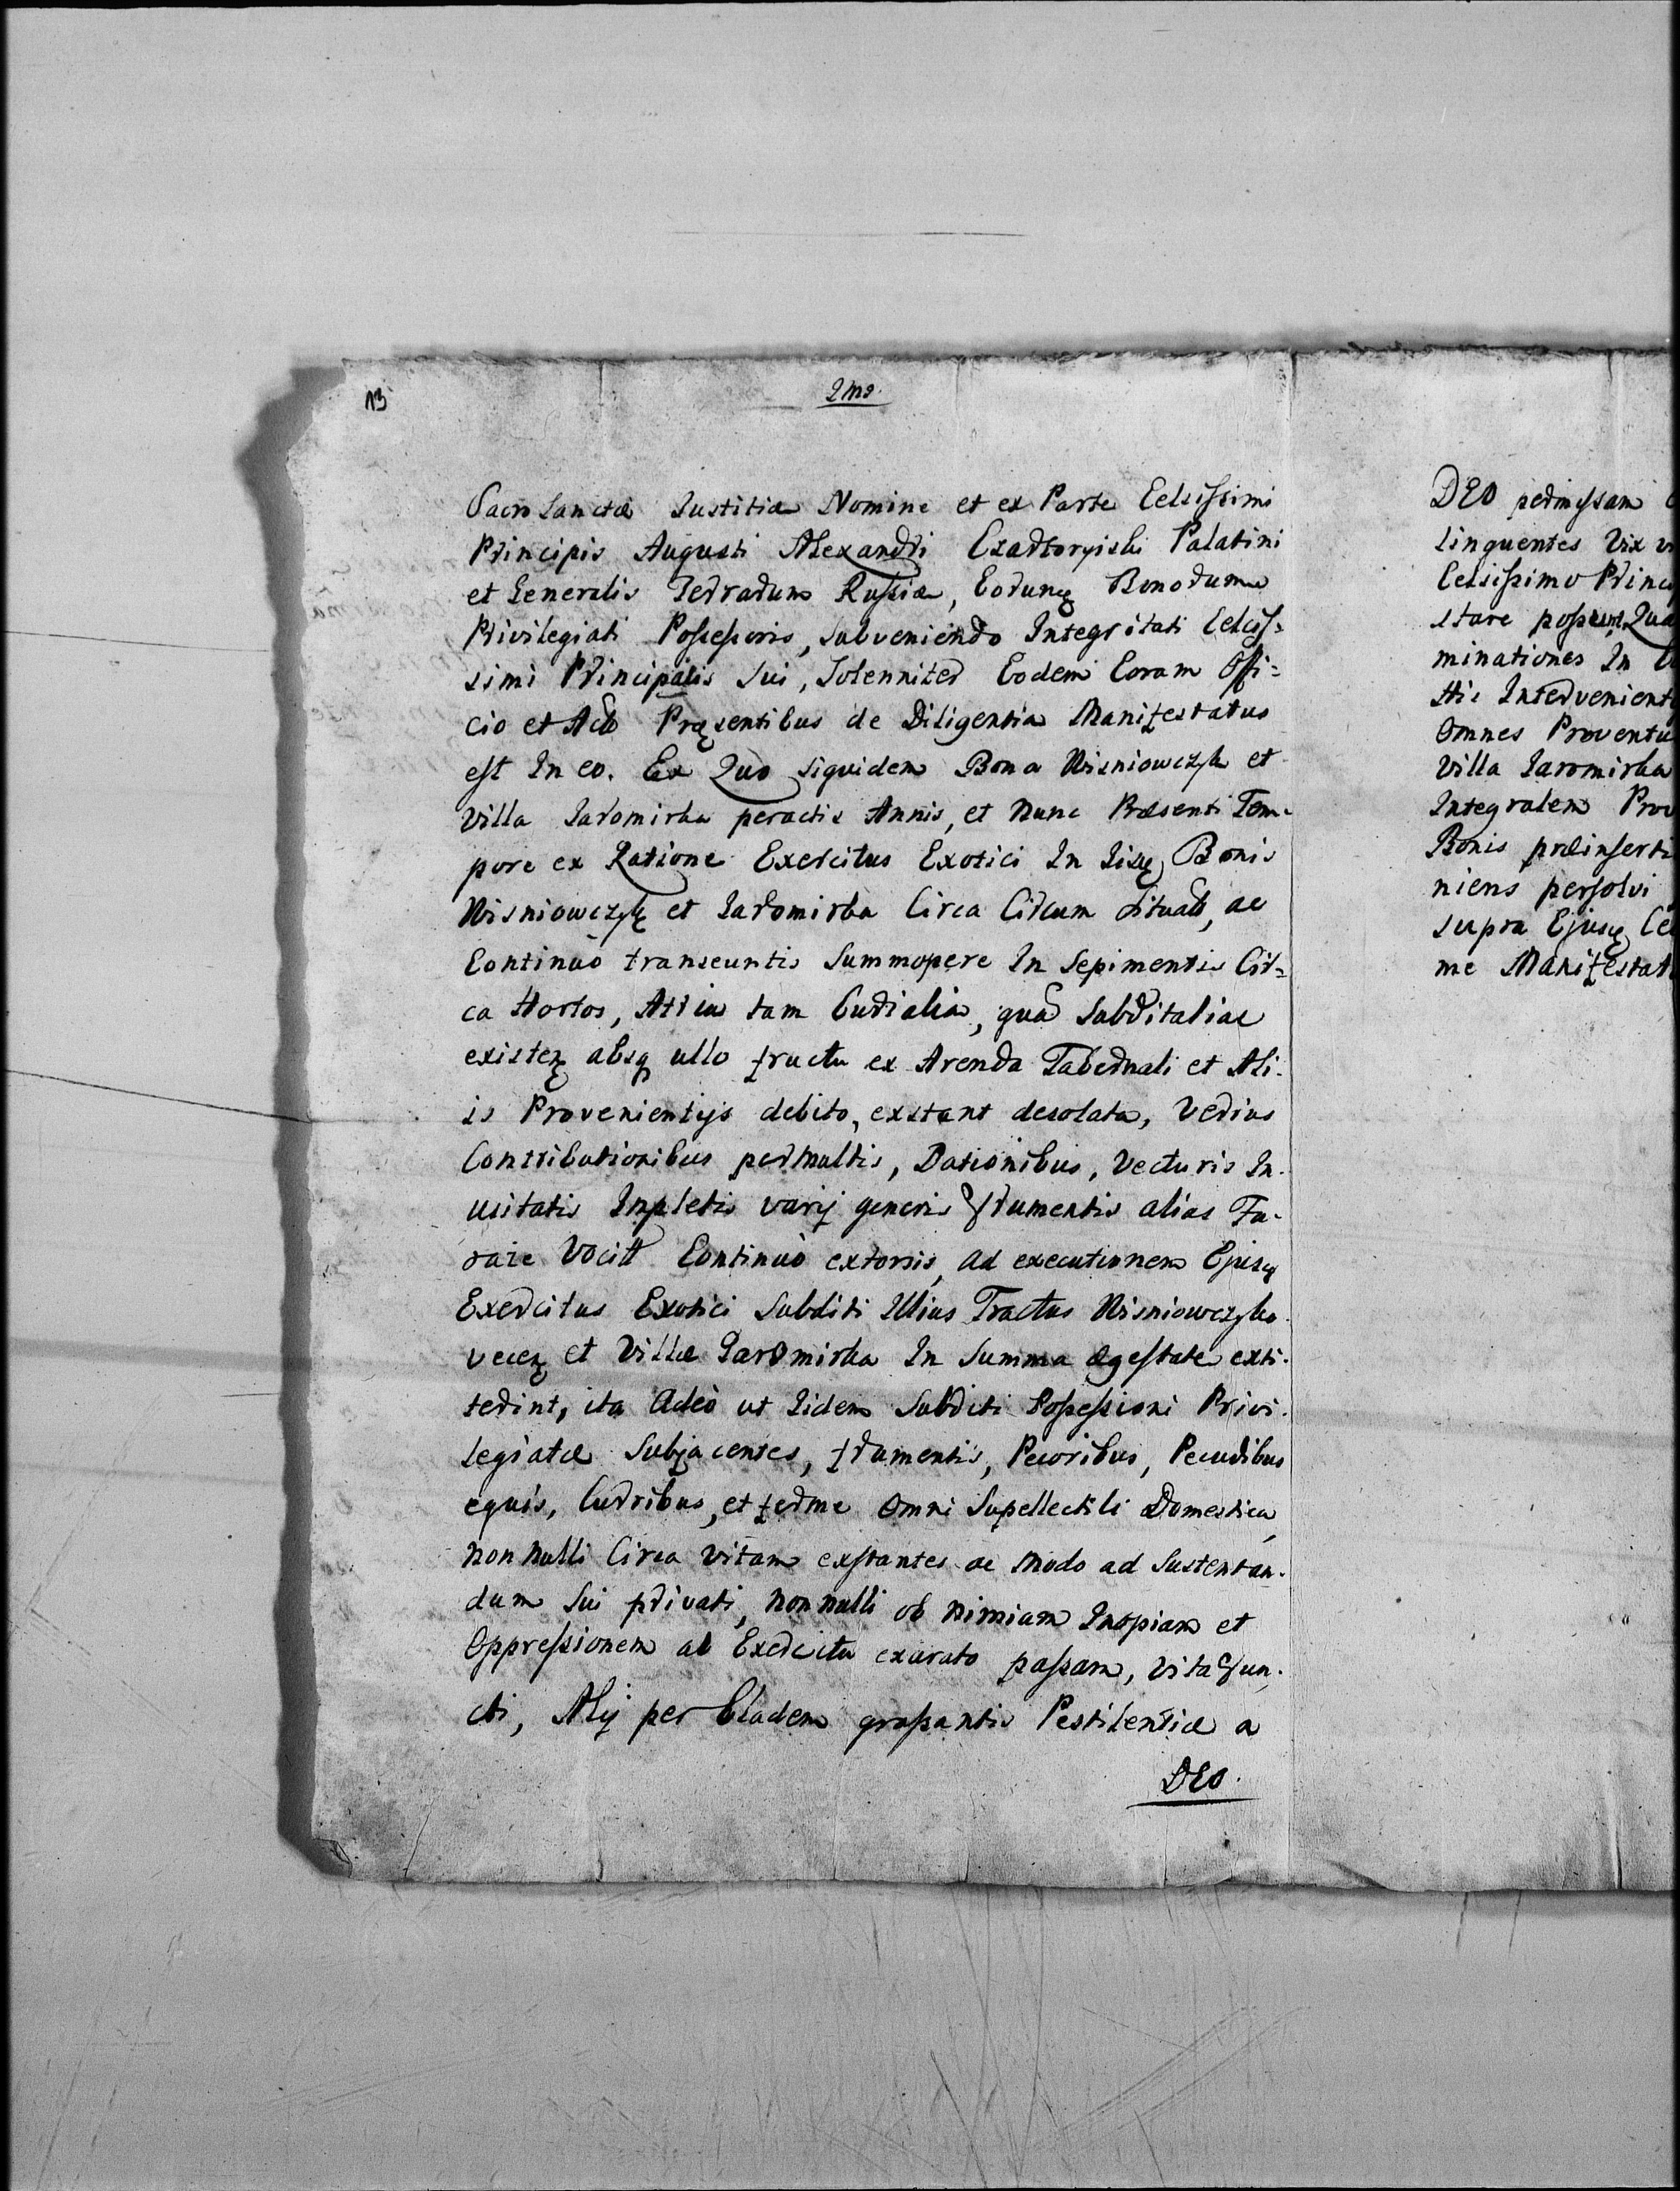 13
2ms.
Sacrosanctæ Iustitiæ Nomine et ex Parte Celsissimi
Principis Augusti Alexandri Czartoryiski Palatini
et Generalis Terrarum Russiæ, Eorunq Bonorum
Privilegiati Possessoris, subveniendo Integritati Celsis-
simi Principalis sui, Solenniter Eodem Coram Offi-
cio et Actis Pręsentibus de Diligentia Manifestatus
est In eo. Ex Quo siquidem Bona Wisniowczyk et
Villa Jaromirka peractis Annis, et nunc Præsenti Tem-
pore ex Ratione Exercitus Exotici In Iisq Bonis
Wisniowczyk et Jaromirka Circa Circum situati, ac
Continuò transeuntis Summopere In Sepimentis Cir-
ca Hortos, Atria tam Curialia, quā Subditaliae
existeñ absq ullo fructu ex Arenda Tabernali et Ali-
is Provenientijs debito, exstant desolata, Verius
Contributionibus permultis, Dationibus, Vecturis In-
usitatis Inpletis varij generis frumentis alias Fu-
raze Vocitt Continuò extorsis, ad executionem Ejusq
Exercitus Exotici Subditi Illius Tractus Wisniowczyko-
veceñ et Villæ Jaromirka In Summa ægestate exti-
terint, ita Adeò ut Iidem Subditi Possessioni Privi-
legiatæ Subjacentes, frumentis, Pecoribus, Pecudibus
equis, Curribus, et ferme Omni Supellectili Domestica,
non nulli Circa Vitam exstantes ac modo ad Sustentan-
dum Sui privati, non nulli ob nimiam Inopiam et
Oppressionem ab Exercitu exarato passam, Vita fun-
cti, Alij per Cladem grassantis Pestilentiæ a
DEO.
DEO permissam
linquentes Vix
Celsissimo Princi
stare possunt. Qua
minationes In
Hic Intervenient
Omnes Proventu
Villa Jaromirka
Integralem Prov
Bonis præinserti
niens persolvi
supra Ejusq Ce
me Manifestat